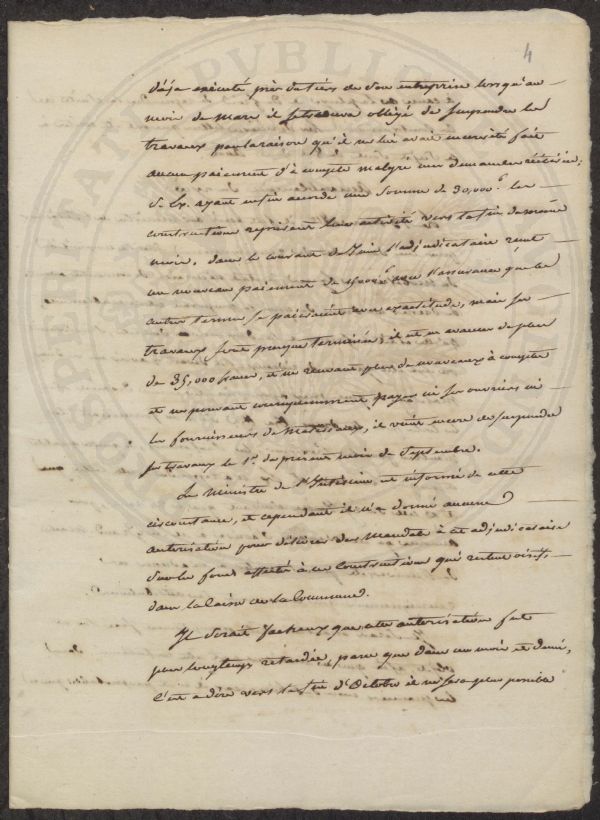 4
déja exécuté près du tiers de son entreprise lorsqu'au
mois de Mars il se trouva obligé de suspendre les
travaux par la raison qu'il ne lui avait encore été fait
aucun paiement d'à compte malgré ses demandes réitérées;
S. Ex. ayant enfin accordé une Somme de 30,000 f. les
constructions reprirent leur activité vers la fin du même
mois, dans le courant de Juin l'adjudicataire reçut
un nouveau paiement de avec l'assurance que les
autres termes se paieraient avec exactitude, mais ses
travaux sont presque terminés, il est en avances de plus
de 35,000 francs, et ne recevant plus de nouveaux à compte
et ne pouvant conséquemment payer ni ses ouvriers ni
les fournisseurs de Matériaux, il vient encore de suspendre
ses travaux le 1er. du présent mois de Septembre.
Le Ministre de l'Intérieur est informé de cette
circonstance, et cependant il n'a donné aucune
autorisation pour délivrer des Mandats à cet adjudicataire
sur les fonds affectés à ces Constructions qui restent oisifs,
dans la Caisse de la Commune.
Il serait facheux que cette autorisation fut
plus longtemps retardée, parce que dans un mois et demi,
c'est a dire vers la fin d'Octobre il ne sera plus possible